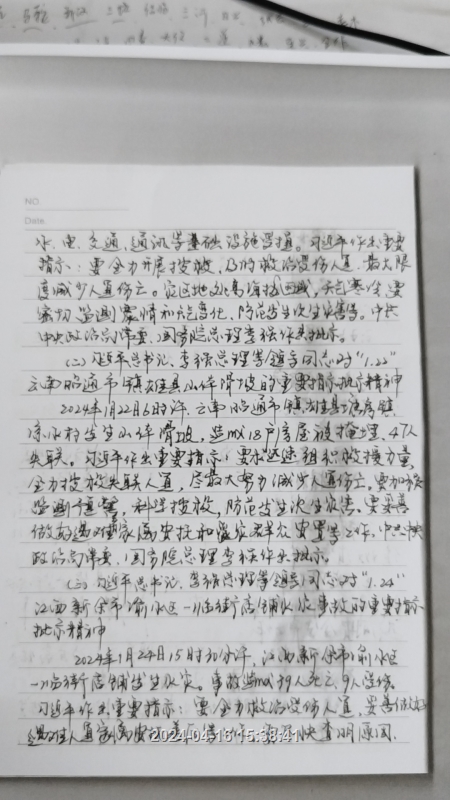 NO.
Date.
水、电、交通、通讯等基础设施受损。习近平作出重要
指示：要全力开展搜救，及时救治受伤人员，最大限
度减少人员伤亡。灾区地处高海拔区域，天气寒冷，要
密切监测震情和天气变化，防范发生次生灾害等。中共
中央政治局常委、国务院总理李强作出批示。
（二）习近平总书记、李强总理等领导同志对“1.22”
云南昭通市镇雄县山体滑坡的重要指示批示精神
2024年1月22日6时许，云南昭通市镇雄县塘房镇
凉水村发生山体滑坡，造成18户房屋被掩埋，47人
失联。习近平作出重要指示：要求迅速组织救援力量，
全力搜救失联人员，尽最大努力减少人员伤亡，要加强
监测预警，科学搜救，防范发生次生灾害。要妥善
做好遇难家属安抚和受灾群众安置等工作。中共中央
政治局常委、国务院总理李强作出批示。
（三）习近平总书记、李强总理等领导同志对“1.24”
江西新余市渝水区一临街店铺火灾事故的重要指示
批示精神
2024年1月24日15时许，江西新余市渝水区
一临街店铺发生火灾。事故造成39人死亡，9人受伤。
习近平作出重要指示：要全力救治受伤人员，要善做好
遇难人员家属安抚 尽快查明原因，
2024-04-16 15:38:41